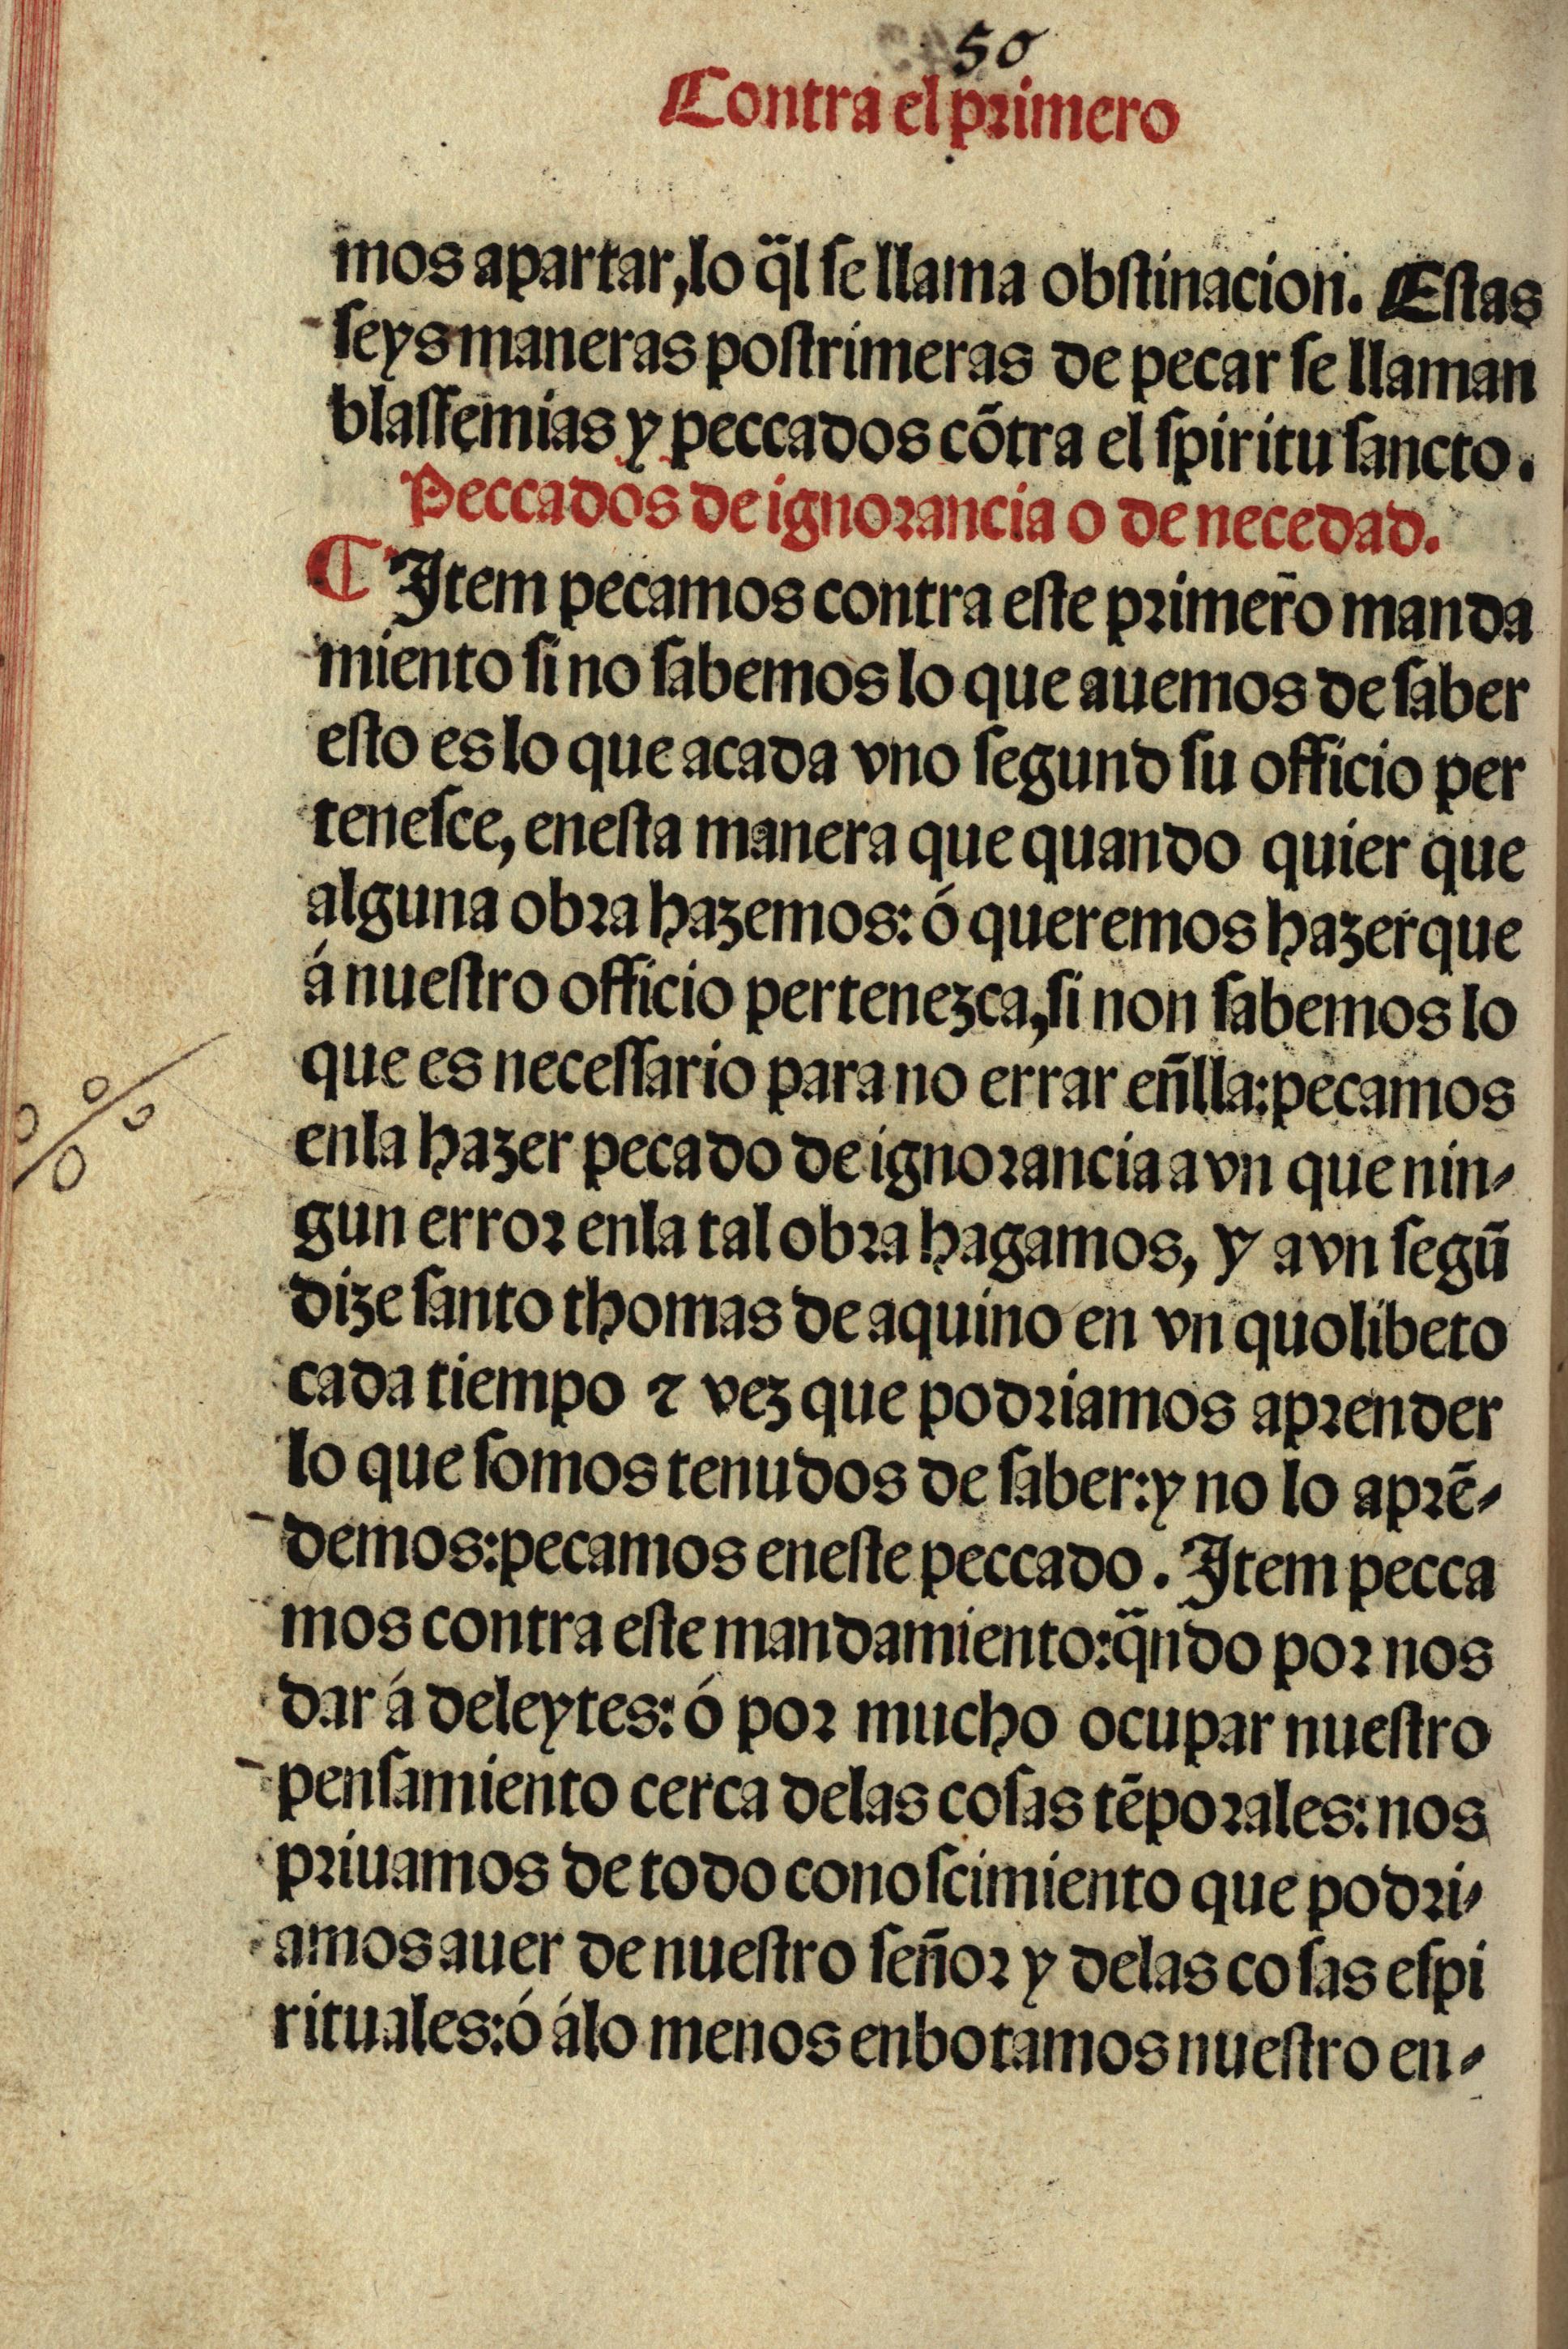 50
Contra el primero
mos apartar, lo q̈l se llama obstinacion. Estas
seys maneras postrimeras de pecar se llaman
blasfemias y peccados cõtra el spiritu sancto.
Peccados de ignorancia o de necedad.
¶ Item pecamos contra este primer̃o manda
miento si no sabemos lo que auemos de saber
esto es lo que acada vno segund su officio per
tenesce, enesta manera que quando quier que
alguna obra hazemos: ó queremos hazer que
á nuestro officio pertenezca, si non sabemos lo
que es necessario para no errar eñlla: pecamos
enla hazer pecado de ignorancia avn que nin-
gun error enla tal obra hagamos, y avn segũ
dize santo thomas de aquino en vn quolibeto
cada tiempo ⁊ vez que podriamos aprender
lo que somos tenudos de saber: y no lo aprẽ-
demos: pecamos eneste peccado. Item pecca
mos contra este mandamiento: q̈ndo por nos
dar á deleytes: ó por mucho ocupar nuestro
pensamiento cerca delas cosas tẽporales: nos
priuamos de todo conoscimiento que podri-
amos auer de nuestro señor y delas cosas espi
rituales: ó álo menos enbotamos nuestro en-